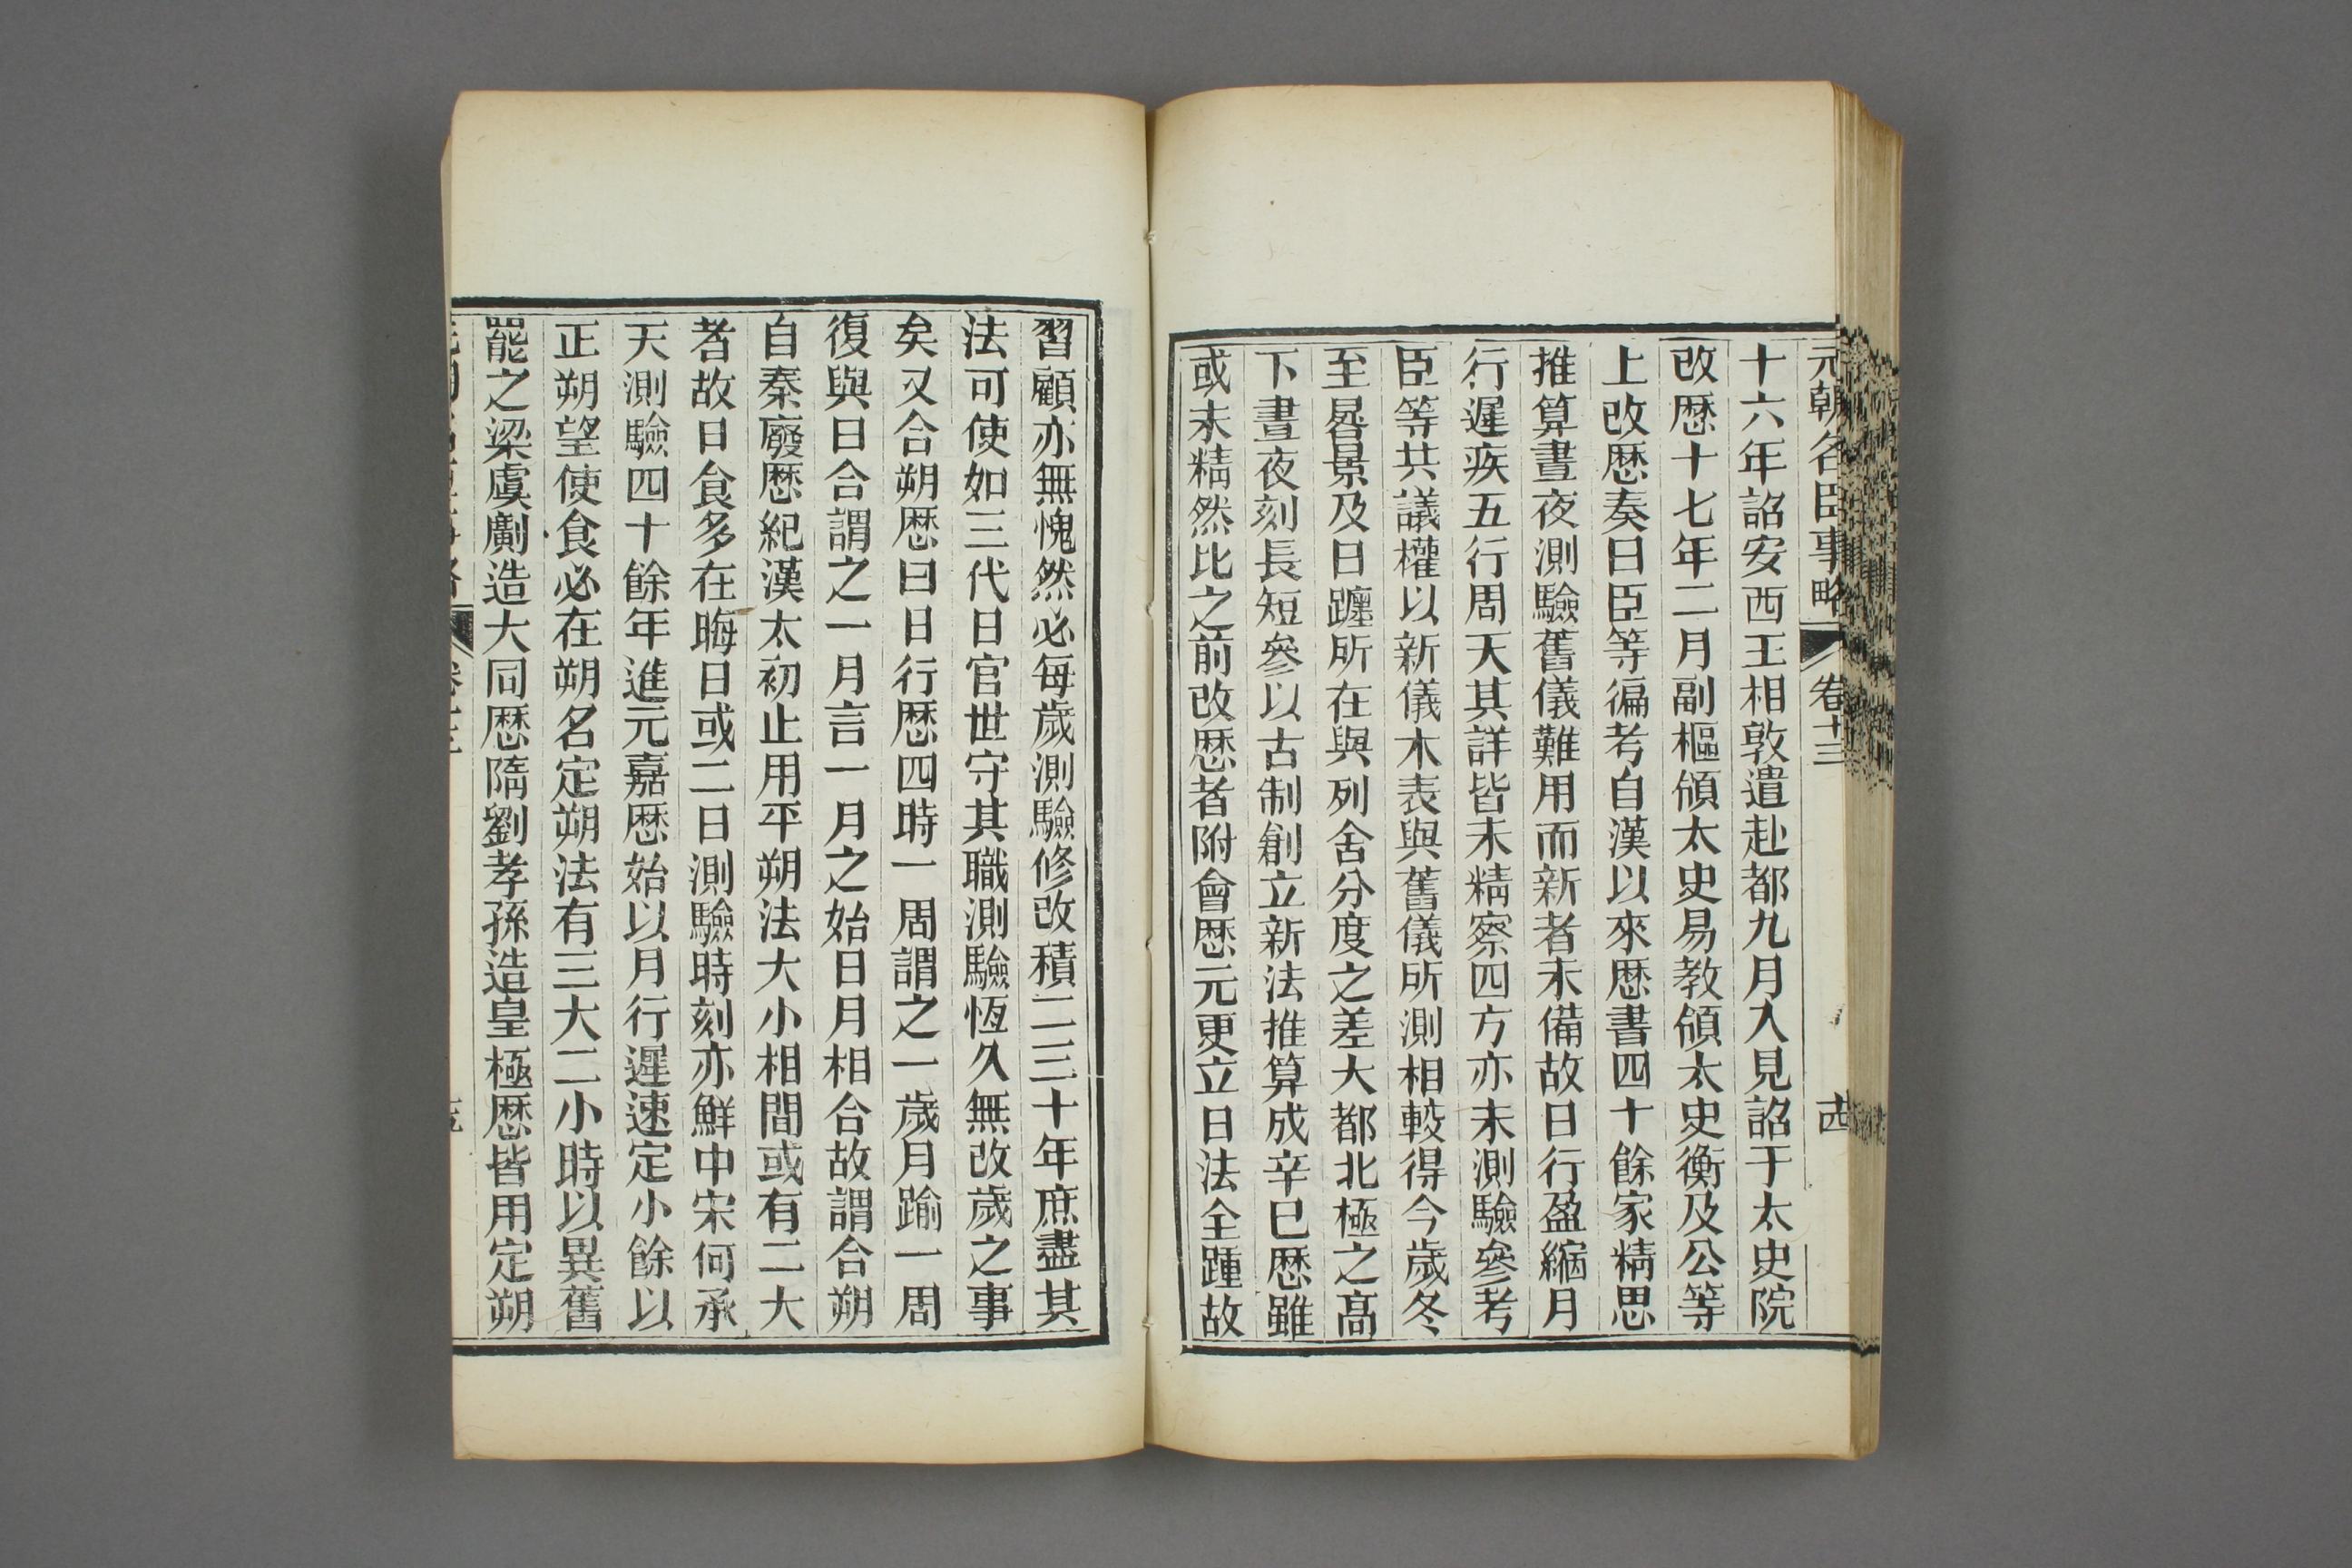 元朝名臣事略 卷十三 十四
十六年詔安西王相敦遣赴都九月入見詔于太史院
改歴十七年二月副樞領太史易教領太史衡及公等
上改歴奏曰臣等徧考自漢以來歴書四十餘家精思
推算晝夜測驗舊儀難用而新者未備故日行盈縮月
行遲疾五行周天其詳皆未精察四方亦未測驗參考
臣等共議權以新儀木表與舊儀所測相較得今歲冬
至晷景及日躔所在與列舍分度之差大都北極之高
下晝夜刻長短參以古制創立新法推算成辛巳歴雖
或未精然比之前改歴者附會歴元更立日法全踵故
習顧亦無愧然必每歲測驗修改積二三十年庶盡其
法可使如三代日官世守其職測驗恆久無改歲之事
矣又合朔歴曰日行歴四時一周謂之一歲月踰一周
復與日合謂之一月言一月之始日月相合故謂合朔
自秦廢歴紀漢太初止用平朔法大小相間或有二大
者故日食多在晦日或二日測驗時刻亦鮮中宋何承
天測驗四十餘年進元嘉歴始以月行遲速定小餘以
正朔望使食必在朔名定朔法有三大二小時以異舊
罷之梁虞劇造大同歴隋劉孝孫造皇極歴皆用定朔